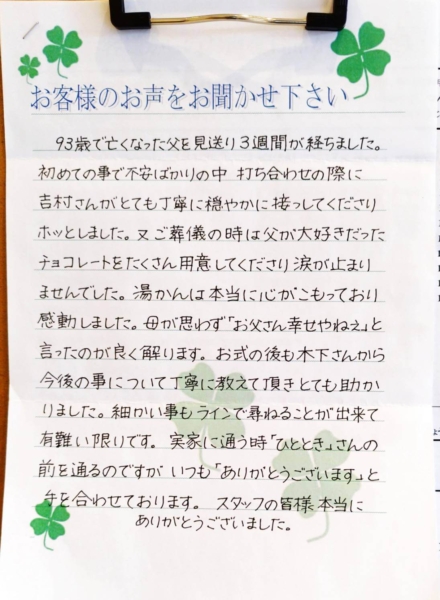 お客様のお声をお聞かせ下さい
93歳で亡くなった父を見送り3週間が経ちました。
初めての事で不安ばかりの中 打ち合わせの際に
吉村さんがとても丁寧に穏やかに接っしてくださり
ホッとしました。又ご葬儀の時は父が大好きだった
チョコレートをたくさん用意してくださり涙が止まり
ませんでした。湯かんは本当に心がこもっており
感動しました。母が思わず「お父さん幸せやねぇ」と
言ったのが良く解ります。お式の後も木下さんから
今後の事について丁寧に教えて頂きとても助か
りました。細かい事もラインで尋ねることが出来て
有難い限りです。実家に通う時「ひととき」さんの
前を通るのですが いつも「ありがとうございます」と
手を合わせております。スタッフの皆様 本当に
ありがとうございました。